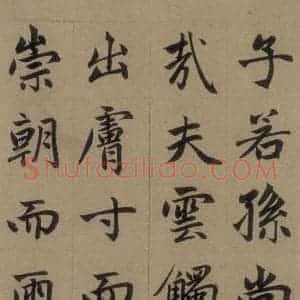 子若孫
哉夫雲觸
出膚寸而
崇朝而雨
Shufaziliao.COM